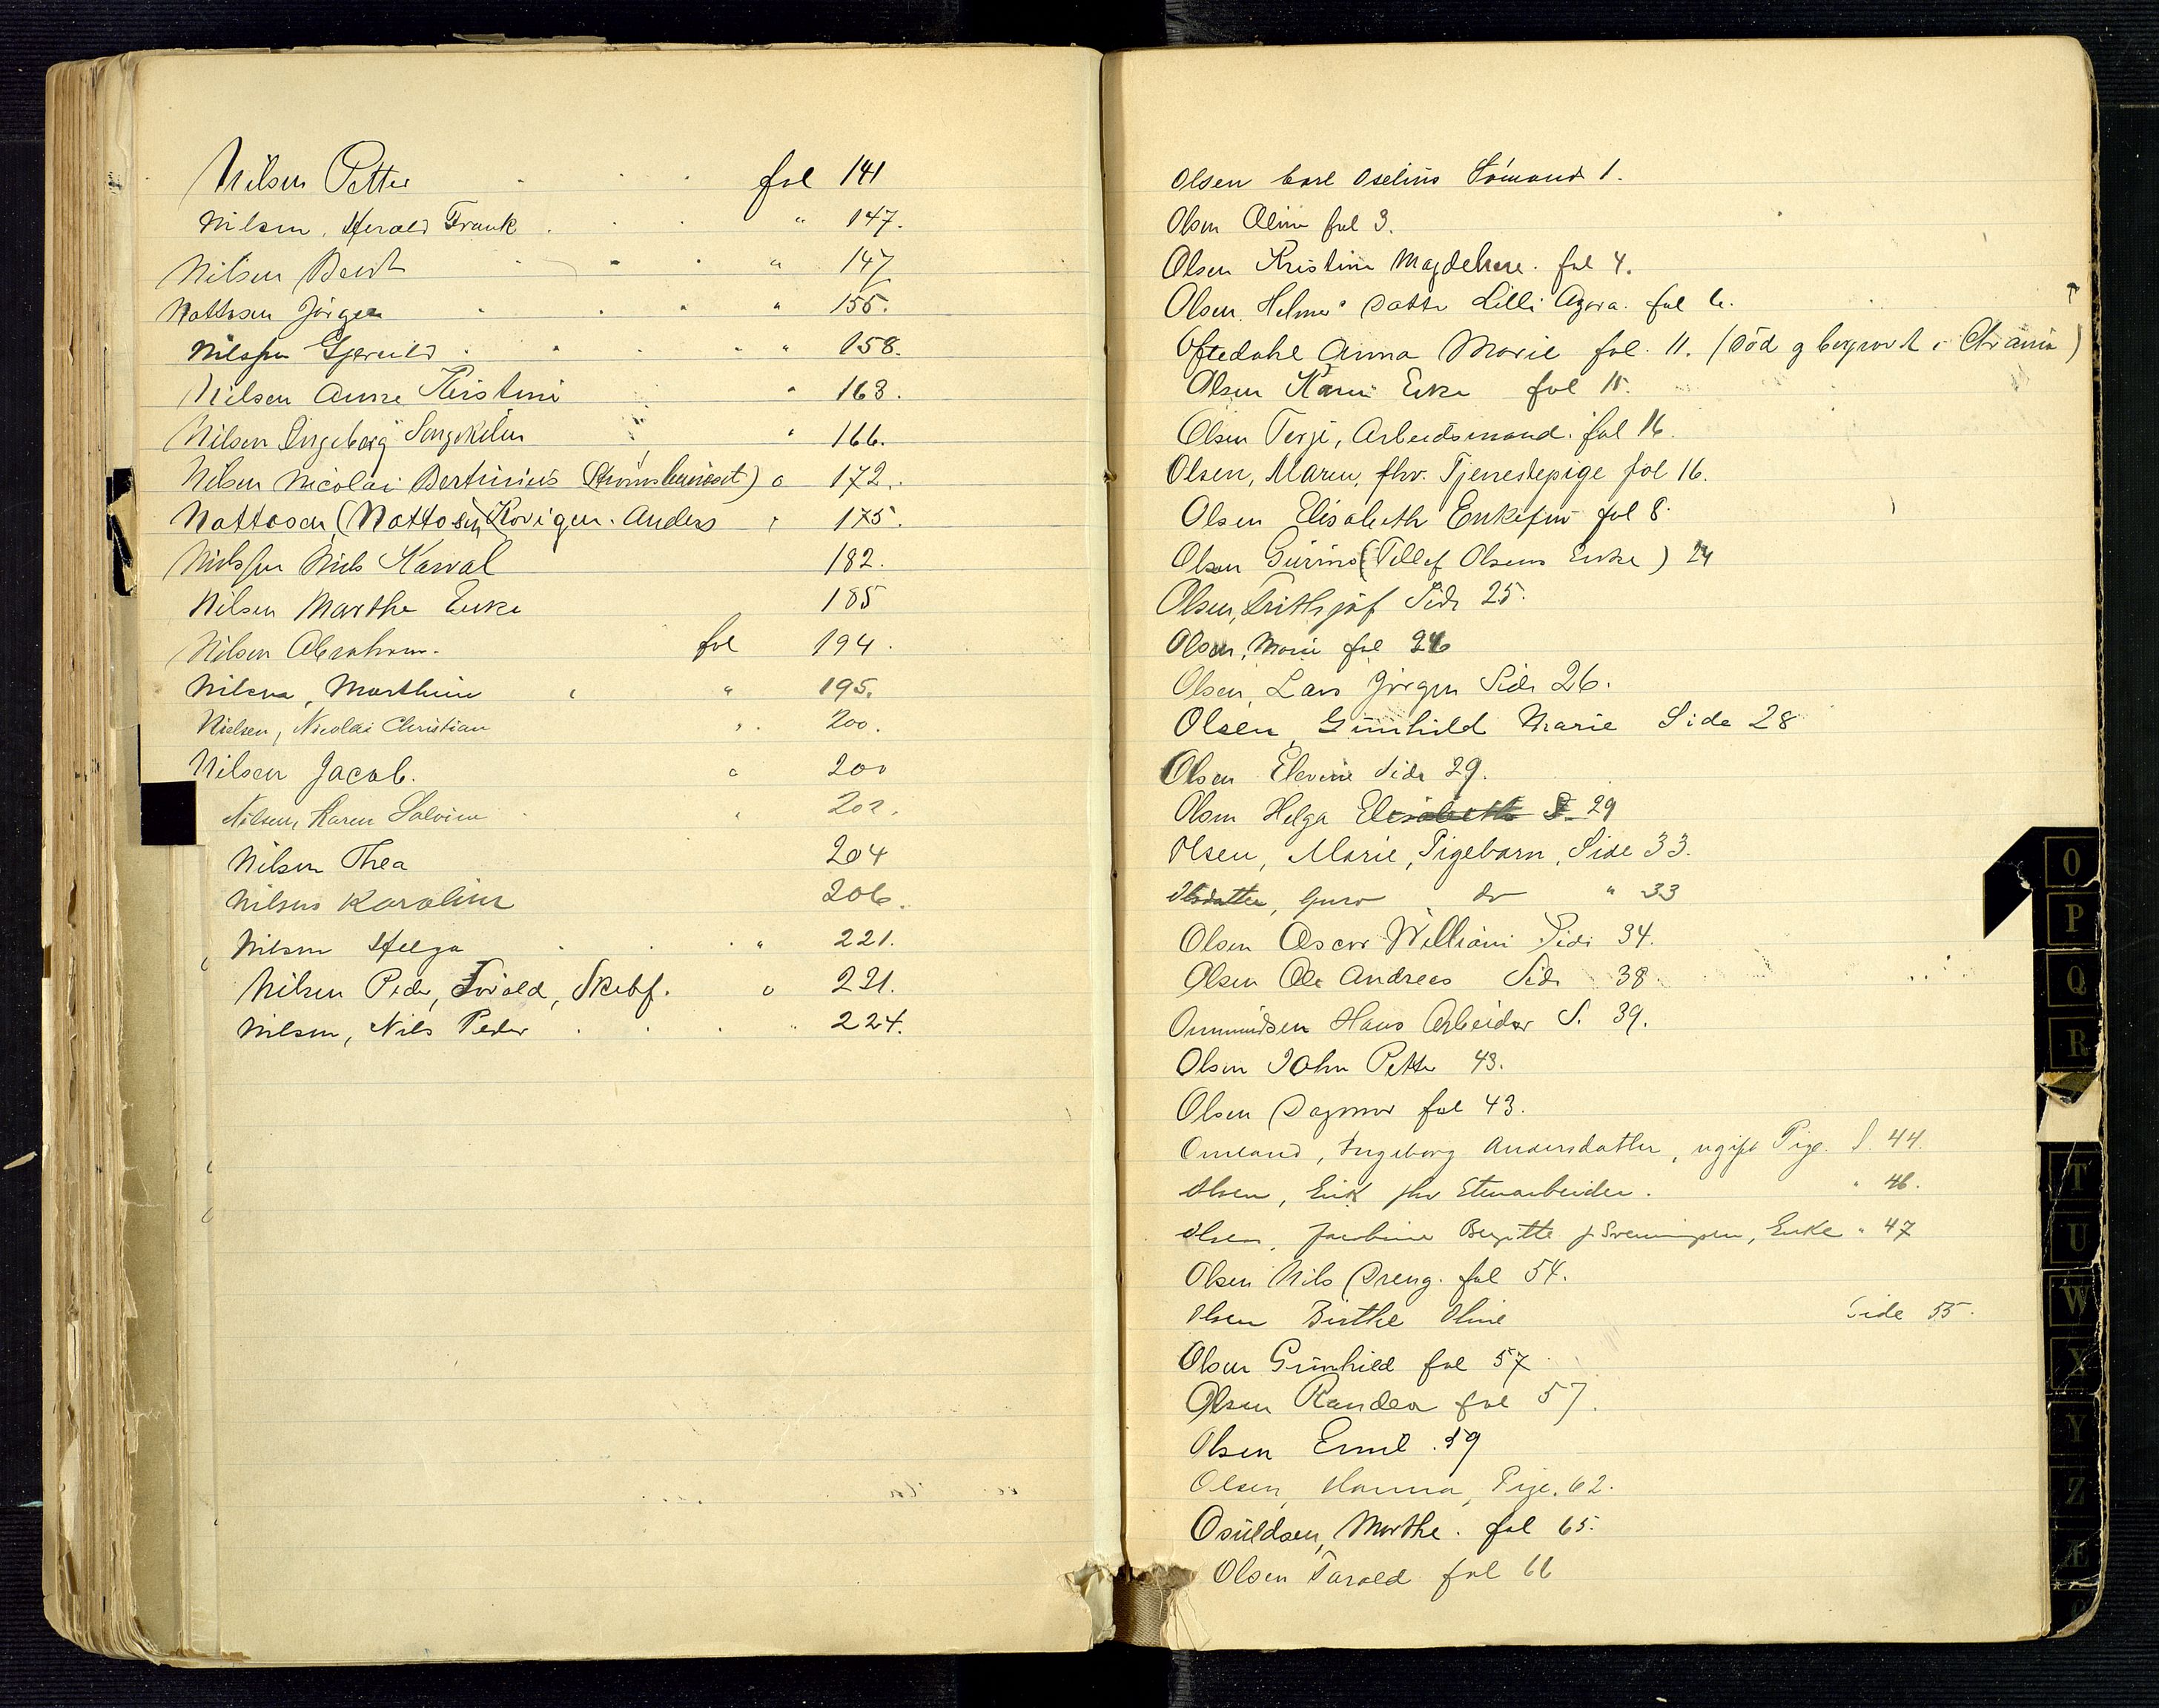 Nilsen Petter fol 141
Nilsen, Herald Frank " 147.
Nilsen Berdt " 147
Nottosen Jörgen " 155.
Nilssen Gjeruld " 158.
Nilsen Anne Kirstine " 163.
Nilsen Ingeborg " 166.
Nilsen Nicolai Bertinius " 172.
Nottosen (Nottosen, Anders " 175.
Nilssen Nils 182.
Nilsen Marthe Enke 185
Nilsen Abraham. fol 194.
Nilsen, Marthine " 195.
Nielsen, Nicolai Christian " 200.
Nilsen Jacob. " 200
Nilsen, Karen Salvine " 202.
Nilsen Thea 204
Nilsen Karoline 206.
Nilsen Helga " 221.
Nilsen Peder, Skibsf. " 221.
Nilsen, Nils Peder " 224.
Olsen Carl Oselius Sömand 1.
Olsen Oline fol 3.
Olsen Kristine Magdelene. fol 4.
Olsen, Helmer Datter Lilli Agora. fol 6.
Oftedahl Anna Marie fol. 11. (Död og begravet i Chrania)
Olsen Karen Enke fol 15.
Olsen Terje, Arbeidsmand. fol 16.
Olsen, Maren, fhv. Tjenestepige fol 16.
Olsen Elisabeth Enkefru fol 8.
Olsen Gurine (Tellef Olsens Enke) 24
Olsen, Frithjof Side 25.
Olsen, Marie fol 26
Olsen, Lars Jörgen Side 26.
Olsen, Gunhild Marie Side 28
Olsen Elevine Side 29.
Olsen Helga Elisabeth S. 29
Olsen, Marie, Pigebarn, Side 33.
Olsdatter, Guro do " 33
Olsen Oscar William Side 34.
Olsen Ole Andreas Side 38.
Ommundsen Hans Arbeider S. 39.
Olsen John Petter 43.
Olsen Dagmar fol 43.
Omland, Ingeborg Andersdatter, ugift Pige. S. 44.
Olsen, Erik fhv Stenarbeider. " 46.
Olsen, Jacobine Birgitte f. Svenningsen, Enke " 47
Olsen Nils Dreng. fol 54.
Olsen Birthe Oline Side 55.
Olsen Gunhild fol 57.
Olsen Randea fol 57.
Olsen Emil. 59
Olsen, Hanna, Pige. 62.
Osuldsen, Marthe. fol 65.
Olsen Tarald fol 66
O
P
Q
R
T
U
W
X
Y
Z
Æ